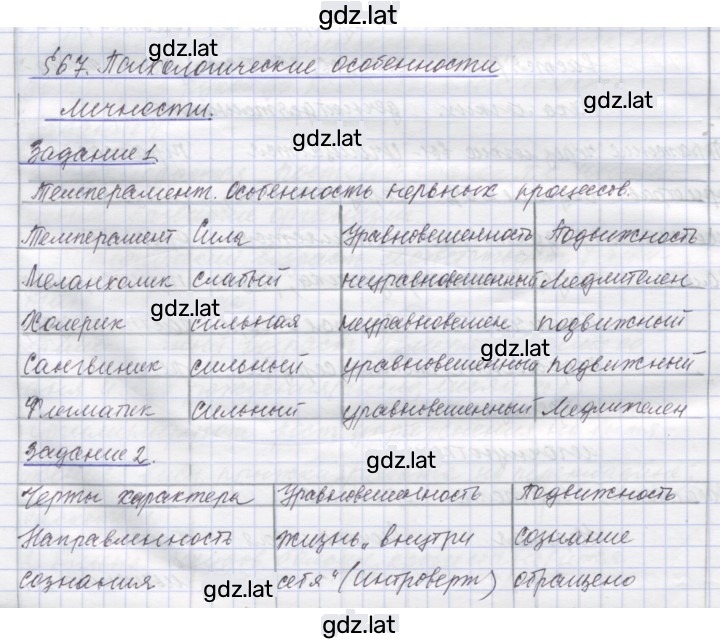 gdz.lat
§67. Психологические особенности
gdz.lat
личности.
gdz.lat
gdz.lat
Задание 1
Темперамент. Особенность нервных процессов.
Темперамент Сила Уравновешенность Подвижность
Меланхолик слабый неуравновешенный Медлителен
gdz.lat
Холерик сильная неуравновешен подвижный
gdz.lat
Сангвиник сильный уравновешенный подвижный
Флегматик сильный уравновешенный Медлителен
Задание 2.
gdz.lat
Черты характера Уравновешенность Подвижность
Направленность жизнь „внутри сознание
сознания себя" (интроверт) обращено
gdz.lat
gdz.lat